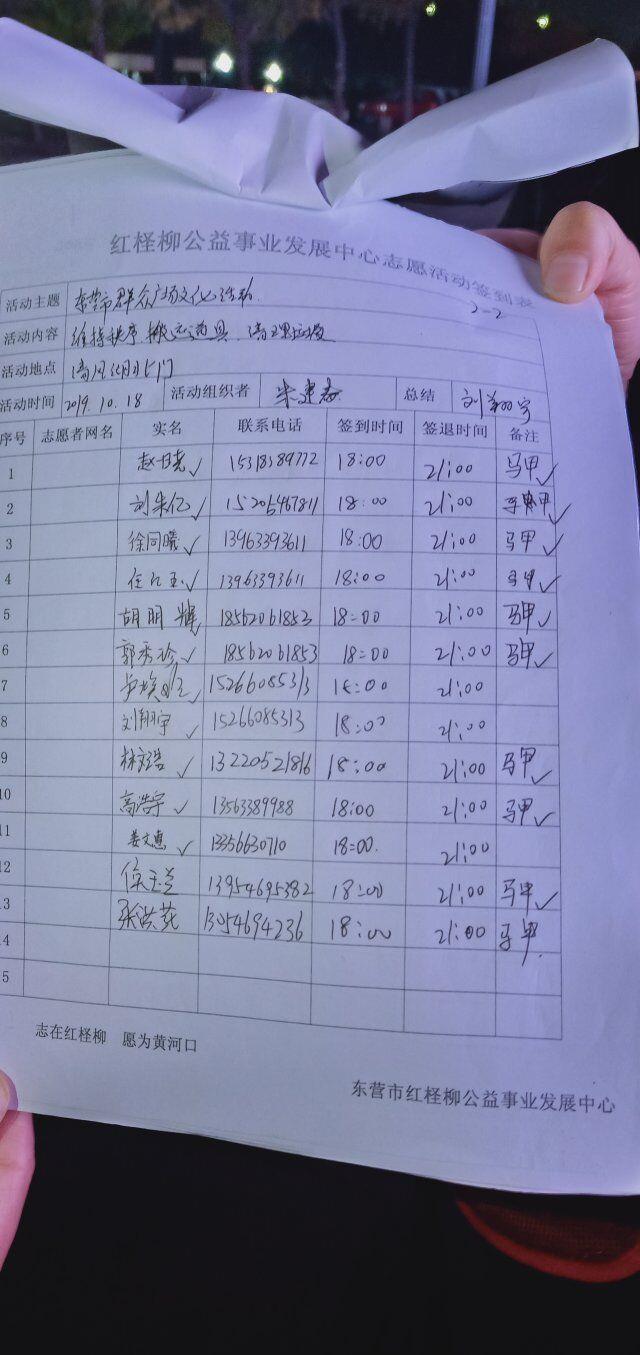 红柽柳公益事业发展中心志愿活动签到表
2-2
活动主题 东营市群众广场文化活动
活动内容 维持秩序 搬运道具、清理垃圾
活动地点 清风湖北门
活动时间 2019.10.18 活动组织者 总结 刘翔宇
序号 志愿者网名 实名 联系电话 签到时间 签退时间 备注
1 15318389772 18:00 21:00 马甲✓
2 刘朱亿✓ 15206467811 18:00 21:00 马甲✓
3 徐同曦✓ 13963393611 18:00 21:00 马甲✓
4 ✓ 13963393611 18:00 21:00 马甲✓
5 胡明辉✓ 18562061853 18:00 21:00 马甲✓
6 郭秀珍✓ 18562061853 18:00 21:00 马甲✓
7 ✓ 15266085313 18:00 21:00
8 刘翔宇✓ 15266085313 18:00 21:00
9 林文浩✓ 13220521816 18:00 21:00 马甲✓
10 高浩宇✓ 13563389988 18:00 21:00 马甲✓
11 姜文惠✓ 13356630710 18:00. 21:00
12 侯玉兰 13954695382 18:00 21:00 马甲✓
13 张洪花 13054694236 18:00 21:00 马甲
14
15
志在红柽柳 愿为黄河口
东营市红柽柳公益事业发展中心